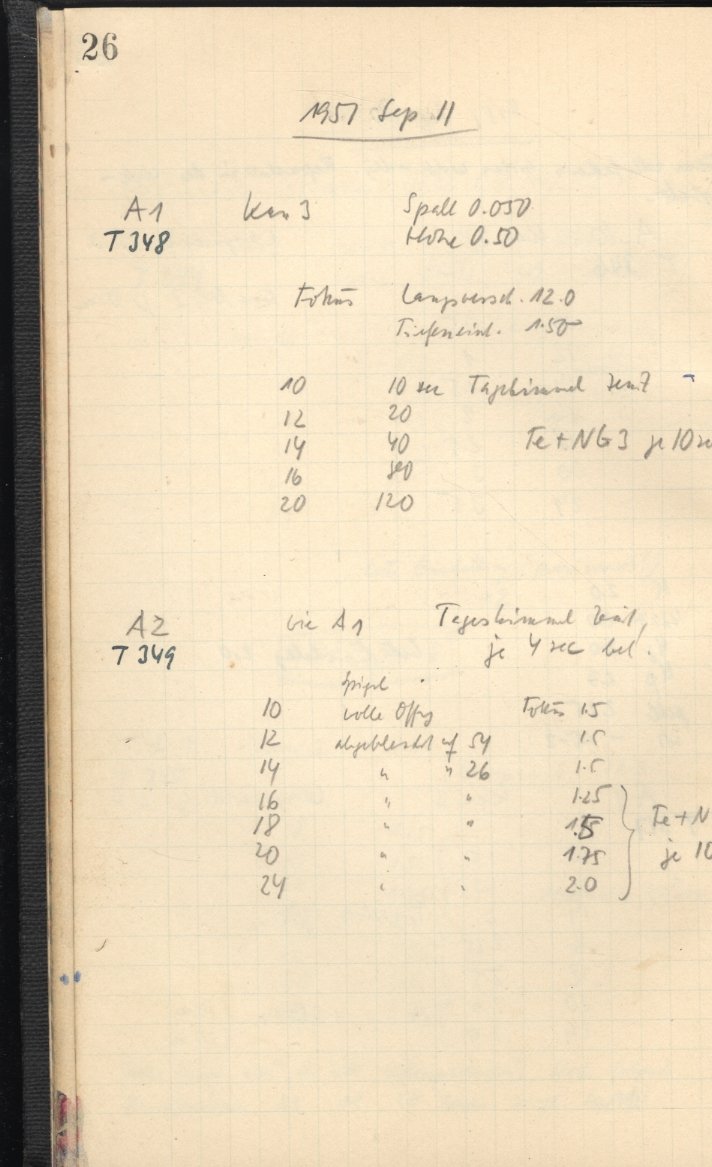 26
1951 Sep 11
A1 Kam 3 Spalt 0.050
T 348 Höhe 0.50
Fokus Längsversch. 12.0
Tiefeneinst. 1.50
10 10 sec Tageshimmel Zenit
12 20
14 40 Fe + NG3 je 10 se
16 80
20 120
A2 wie A1 Tageshimmel Zenit,
T 349 je 4 sec bel.
Spiegel
10 volle Öffng Fokus 1.5
12 abgeblendet auf 54 1.5
14 " " 26 1.5
16 " " 1.25
18 " " 1.5 Fe + N
20 " " 1.75 je 10
24 " " 2.0